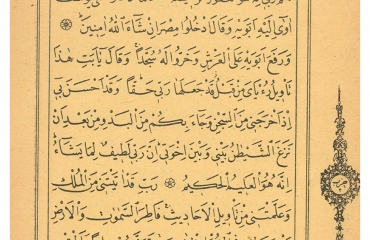 اٰوٰٓى اِلَيْهِ اَبَوَيْهِ وَقَالَ ادْخُلُوا مِصْرَ اِنْ شَٓاءَ اللّٰهُ اٰمِنِينَ
وَرَفَعَ اَبَوَيْهِ عَلَى الْعَرْشِ وَخَرُّوا لَهُ سُجَّدًا وَقَالَ يَٓا اَبَتِ هٰذَا
تَأْوِيلُ رُءْيَايَ مِنْ قَبْلُ قَدْ جَعَلَهَا رَبِّي حَقًّا وَقَدْ اَحْسَنَ بِي
اِذْ اَخْرَجَنِي مِنَ السِّجْنِ وَجَٓاءَ بِكُمْ مِنَ الْبَدْوِ مِنْ بَعْدِ اَنْ
نَزَغَ الشَّيْطَانُ بَيْنِي وَبَيْنَ اِخْوَتِي اِنَّ رَبِّي لَطِيفٌ لِمَا يَشَٓاءُ
اِنَّهُ هُوَ الْعَلِيمُ الْحَكِيمُ رَبِّ قَدْ اٰتَيْتَنِي مِنَ الْمُلْكِ
وَعَلَّمْتَنِي مِنْ تَأْوِيلِ الْاَحَادِيثِ فَاطِرَ السَّمٰوَاتِ وَالْاَرْضِ